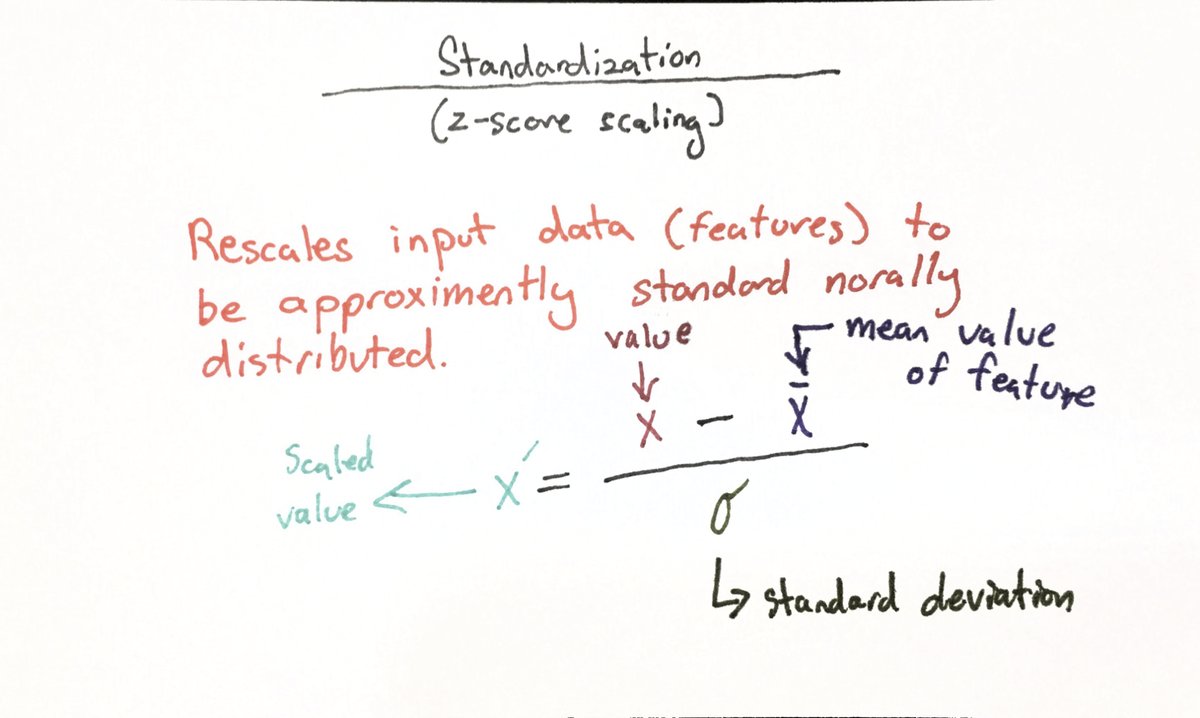 Standardization
(z-score scaling)
Rescales input data (features) to
be approximently standard norally
distributed.
value
mean value
of feature
x - x̄
Scaled
value
x' =
σ
standard deviation